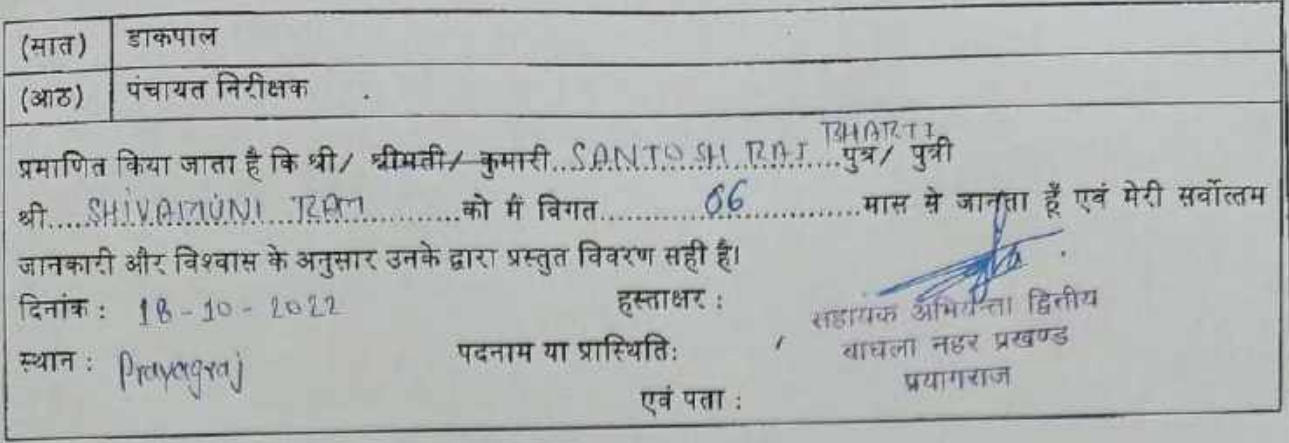 (सात) डाकपाल
(आठ) पंचायत निरीक्षक
प्रमाणित किया जाता है कि श्री/ श्रीमती/ कुमारी..SANTOSH RAJ BHARTI..पुत्र/ पुत्री
श्री.....SHIVAMUNI RAM..........को मैं विगत............06................मास से जानता हूँ एवं मेरी सर्वोत्तम
जानकारी और विश्वास के अनुसार उनके द्वारा प्रस्तुत विवरण सही है।
दिनांक : 18-10-2022 हस्ताक्षर :
सहायक अभियन्ता द्वितीय
स्थान : Prayagraj पदनाम या प्रास्थिति: बाघला नहर प्रखण्ड
प्रयागराज
एवं पता :